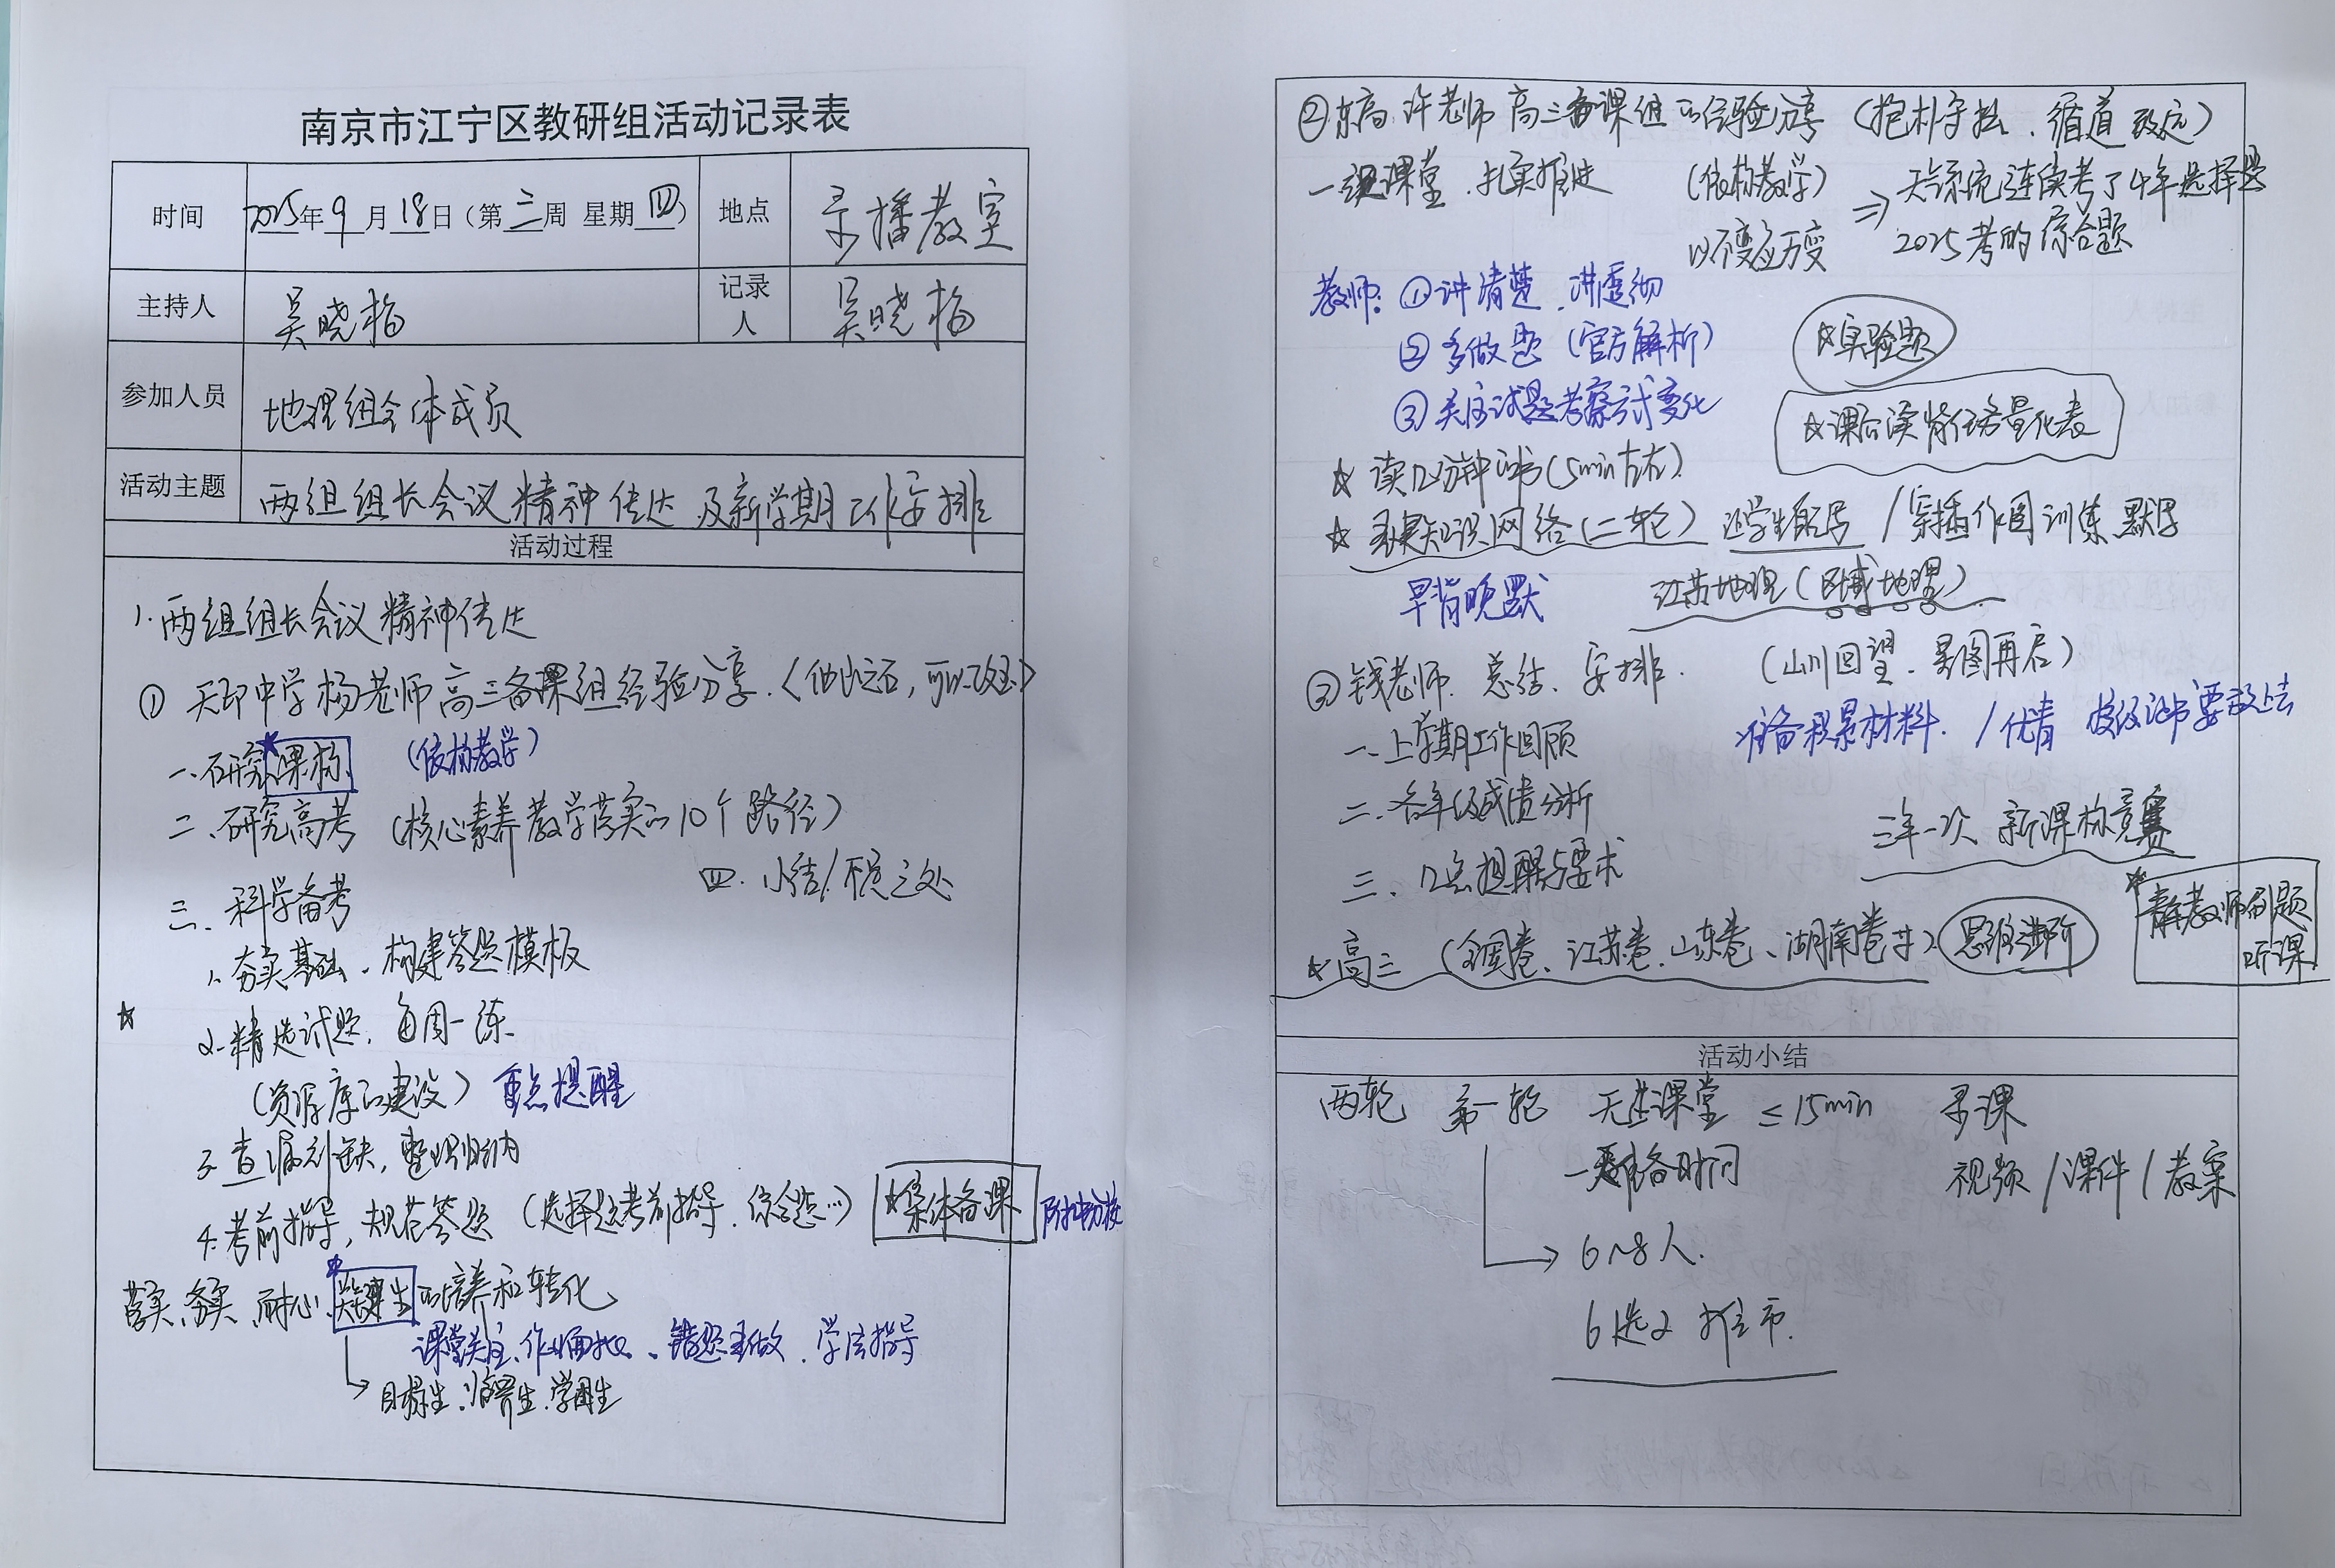 南京市江宁区教研组活动记录表
时间 2025年9月18日（第三周 星期四） 地点 录播教室
主持人 吴晓杨 记录人 吴晓杨
参加人员 地理组全体成员
活动主题 两组组长会议精神传达及新学期工作安排
活动过程
1. 两组组长会议精神传达
① 天印中学杨老师高三备课组经验分享.〈他山之石，可以攻玉〉
一.研究课标 (依标教学)
二.研究高考 (核心素养教学落实的10个路径)
三.科学备考 四.小结/不足之处
1.夯实基础、构建答题模板
☆ 2.精选试题，每周一练.
(资源库的建设) 重点提醒
3.查漏补缺，整理归纳
4.考前指导，规范答题 (选择题考前指导.综合题…) ★集体备课 附中分校
落实、务实、耐心、关键生的培养和转化
课堂关注、作业面批、错题重做、学法指导
目标生.临界生.学困生
② 东高许老师高三备课组的经验分享 (抱朴守拙、循道致远)
一堤课堂.扎实推进 (依标教学) ⇒ 天气系统连续考了4年选择题
以不变应万变 2025考的综合题
教师: ①讲清楚、讲透彻
②多做题 (官方解析) ☆实验题
③关注试题考察方式变化
☆课后读背任务量化表
☆ 读几分钟书(5min左右)
☆ 重建知识网络(二轮) 让学生自己写 /穿插作图训练 默写
早背晚默 江苏地理(区域地理)
③ 钱老师. 总结、安排. (山川回望、景图再启)
一.上学期工作回顾 准备积累材料. /优青 校级证书要放上去
二.各年级成绩分析 三年一次 新课标竞赛
三、几点提醒与要求
★青年教师命题 听课
☆高三 (全国卷、江苏卷、山东卷、湖南卷等) 思维进阶
活动小结
两轮 第一轮 无生课堂 ≤15min 录课
一天准备时间 视频/课件/教案
6~8人.
6选2 推市.